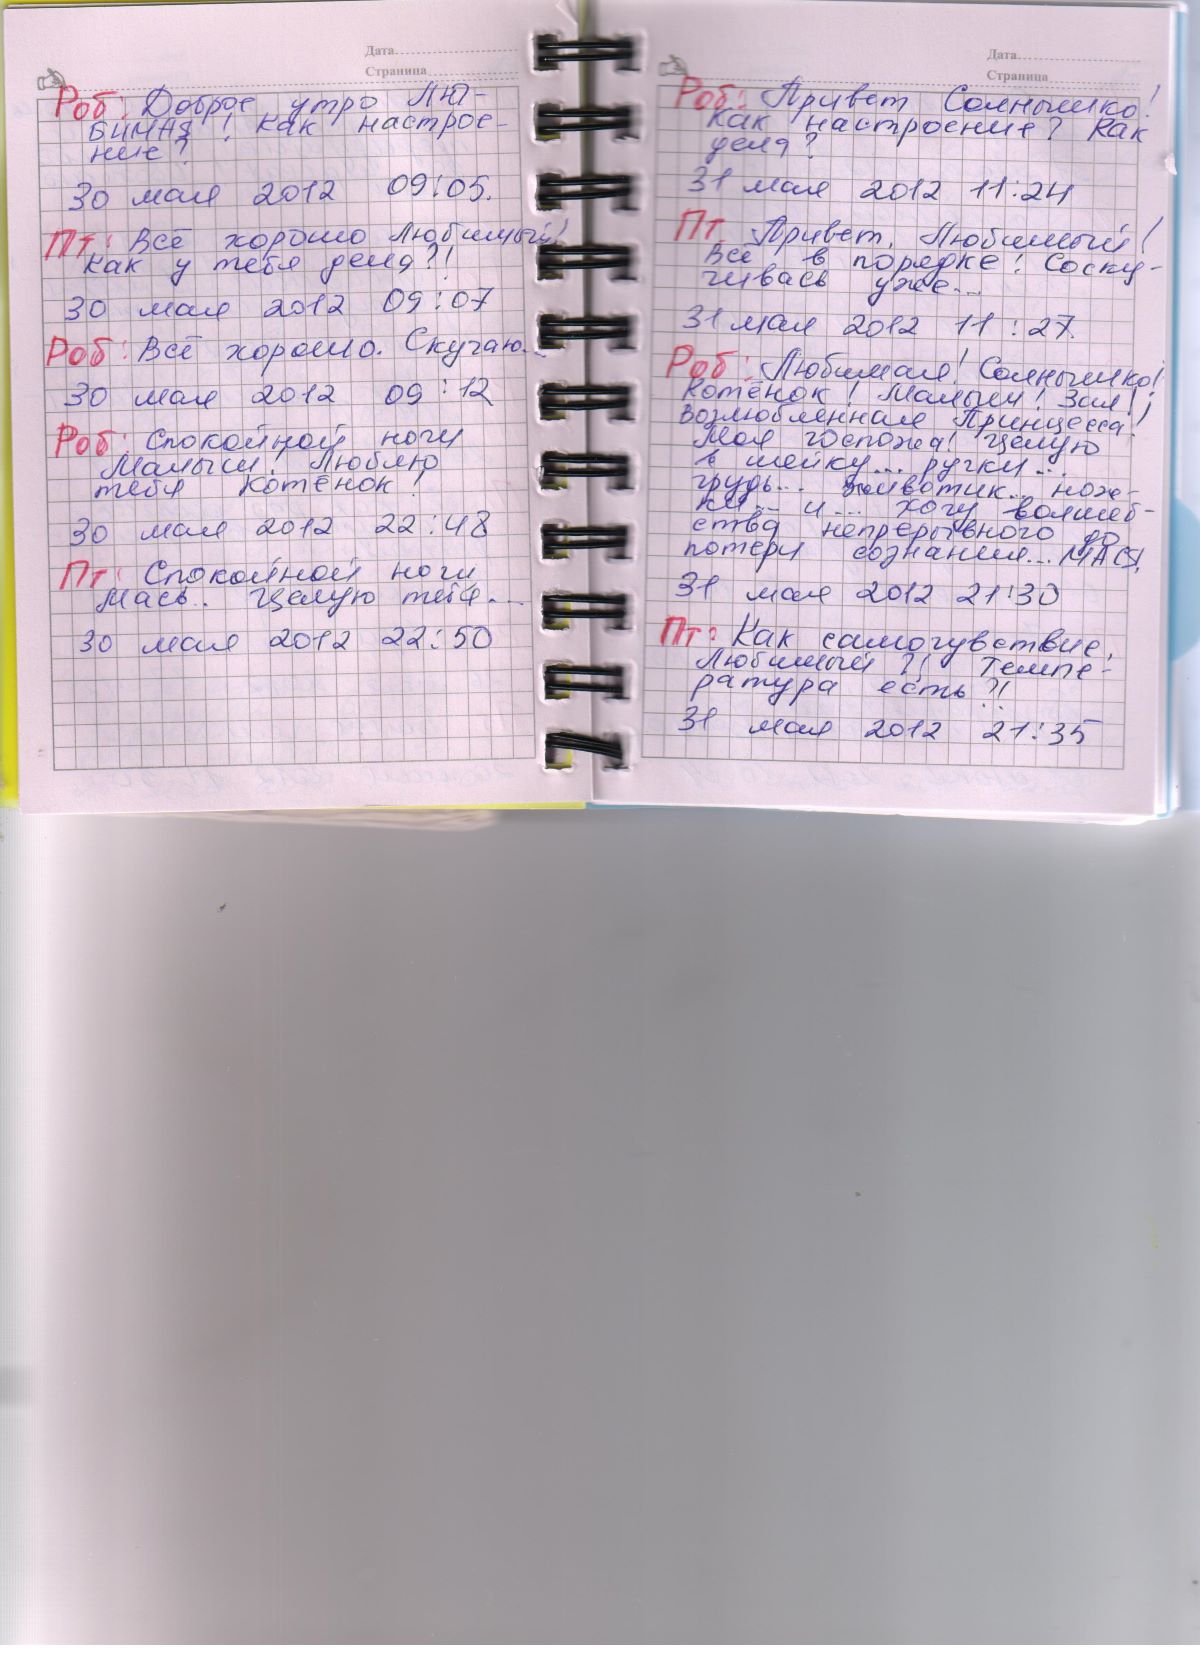 Дата
Страница
Роб: Доброе утро Лю-
бимая! Как настрое-
ние?
30 мая 2012 09:05.
Пт: Всё хорошо Любимый!
Как у тебя дела?!
30 мая 2012 09:07
Роб: Всё хорошо. Скучаю...
30 мая 2012 09:12
Роб: Спокойной ночи
Малыш! Люблю
тебя Котёнок!
30 мая 2012 22:48
Пт: Спокойной ночи
Мась.. Целую тебя...
30 мая 2012 22:50
Дата
Страница
Роб: Привет Солнышко!
Как настроение? Как
дела?
31 мая 2012 11:24
Пт Привет, Любимый!
Всё в порядке! Соску-
чивась уже...
31 мая 2012 11:27.
Роб: Любимая! Солнышко!
Котёнок! Малыш! Зая!
Возлюбленная Принцесса!
Моя госпожа! Целую
шейку... ручки...
грудь... животик... нож-
ки... и... хочу волшеб-
ства непрерывного до
потери сознания... МАСЯ,
31 мая 2012 21:30
Пт: Как самочувствие,
Любимый?! Темпе-
ратура есть?!
31 мая 2012 21:35